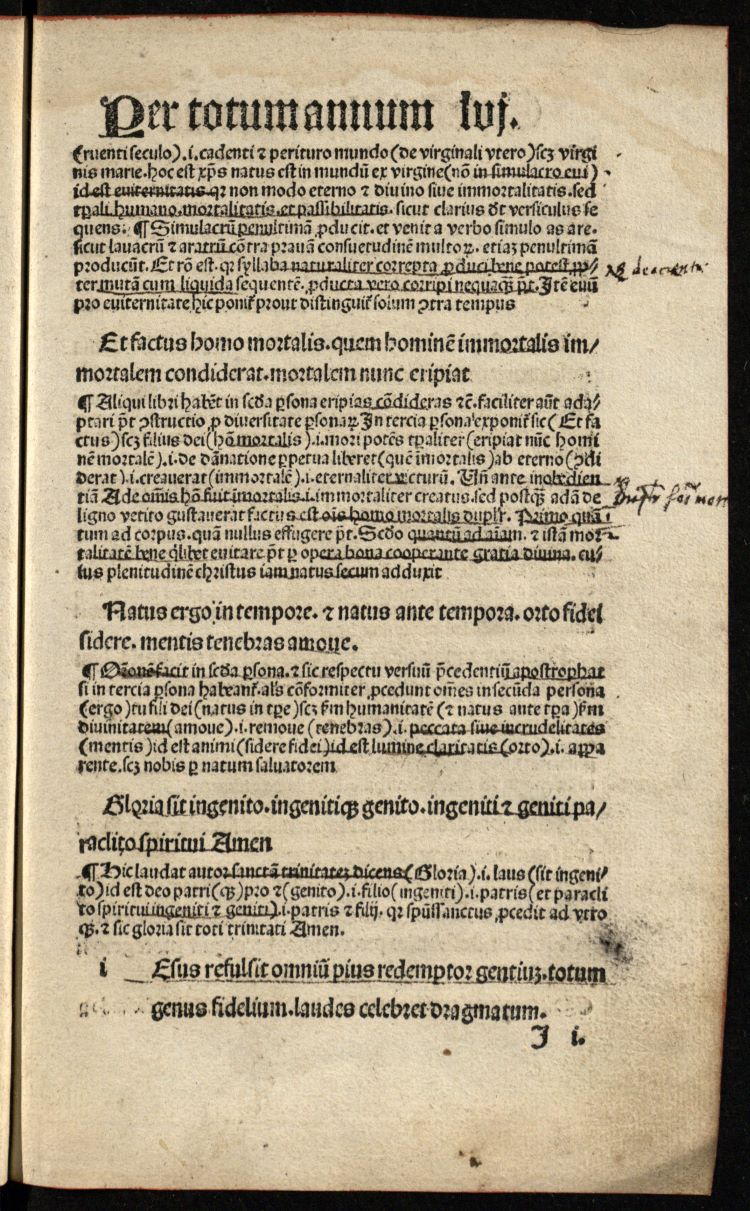 Per totum annum lvj.
(ruenti seculo).i. cadenti ⁊ perituro mundo (de virginali vtero) scꝫ virgi
nis marie. hoc est xp̄s natus est in mundū ex virgine (nō in simulacro eui)
id est euiternitatis qꝛ non modo eterno ⁊ diuino siue immortalitatis. sed
tp̄ali humano. mortalitatis. et passibilitatis. sicut clarius dr̄ versiculus se
quens. ¶ Simulacrū penultimā ꝓducit. et venit a verbo simulo as are.
sicut lauacrū ⁊ aratrū contra prauā consuetudinē multoꝝ. etiaꝫ penultimā
producūt. Et rō est. qꝛ syllaba naturaliter correpta ꝓduci bene potest ꝓp⸗
ter mutā cum liquida sequentē. ꝓducta vero corripi nequaꝗ̄ pōt. Itē euū
pro euiternitate hic ponit᷑ prout distinguit᷑ solum ꝯtra tempus
Et factus homo mortalis. quem hominē immortalis im⸗
mortalem condiderat. mortalem nunc eripiat
¶ Aliqui libri habēt in scd̄a ꝑsona eripias cōdideras ⁊c̄. faciliter aūt adap⸗
tari pn̄t ꝯstructio ꝓ diuersitate ꝑsonaꝝ. In tercia ꝑsona exponit᷑ sic (Et fa
ctus) scꝫ filius dei (hō mortalis).i. mori potēs tp̄aliter (eripiat nūc homi
nē mortalē).i. de dānatione ꝑpetua liberet (quē īmortalis) ab eterno (ꝯdi
derat).i. creauerat (immortalē).i. eternaliter victurū. Vn̄ ante inobedien
tiā Ade om̄is hō fuit īmortalis.i. immortaliter creatus. sed postꝗ̄ adā de
ligno vetito gustauerat factus est oīs homo mortalis duplr̄. Primo quā
tum ad corpus. quā nullus effugere pōt. Scd̄o quantū ad aīam. ⁊ istā mor
talitatē bene q̄libet euitare pōt ꝑ opera bona cooperante gratia diuina. cu⸗
ius plenitudinē christus iam natus secum adduxit
Natus ergo in tempore. ⁊ natus ante tempora. orto fidei
sidere. mentis tenebras amoue.
¶ Orōnē facit in scd̄a ꝑsona. ⁊ sic respectu versuū p̄cedentiū apostrophat
si in tercia ꝑsona habeant᷑. als̄ cōformiter ꝓcedunt om̄es in secūda persona
(ergo) tu fili dei (natus in tp̄e) scꝫ ẜm humanitatē (⁊ natus ante tp̄a) ẜm
diuinitatem (amoue).i. remoue (tenebras).i. peccata siue incrudelitates
(mentis) id est animi (sidere fidei) id est lumine claritatis (orto).i. appa
rente. scꝫ nobis ꝑ natum saluatorem
Gloria sit ingenito. ingenitiqꝫ genito. ingeniti ⁊ geniti pa⸗
raclito spiritui Amen
¶ Hic laudat autor sanctā trinitateꝫ dicens (Gloria).i. laus (sit ingeni⸗
to) id est deo patri (qꝫ) pro ⁊ (genito).i. filio (ingeniti).i. patris (et paracli
to spiritui ingeniti ⁊ geniti).i. patris ⁊ filij. qꝛ spūssanctus ꝓcedit ad vtro
qꝫ. ⁊ sic gloria sit toti trinitati Amen.
i Esus refulsit omniū pius redemptor gentiuꝫ. totum
genus fidelium. laudes celebret dragmatum.
I i.